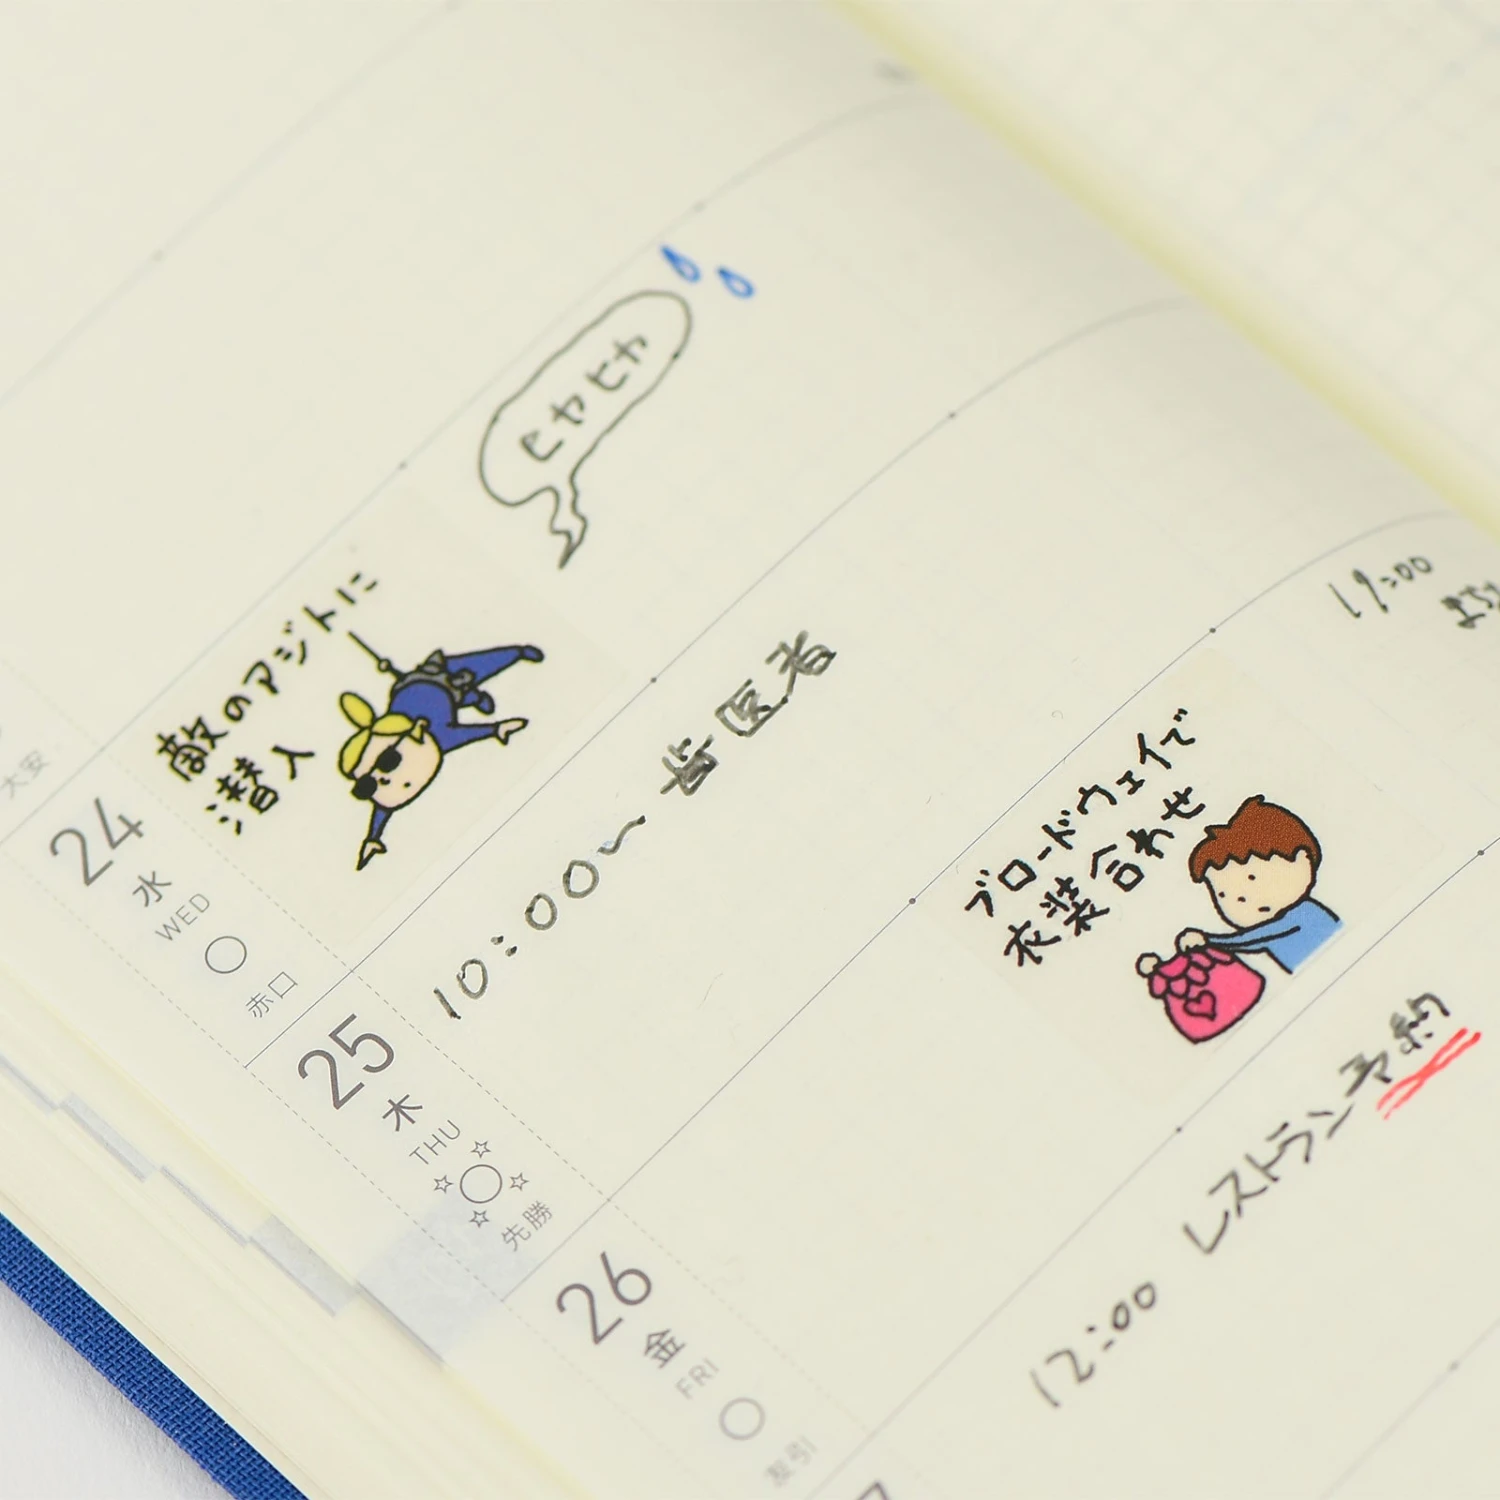 大安
24
水
WED
赤口
敵のアジトに
潜入
ヒヤヒヤ
25
木
THU
先勝
10:00〜 歯医者
ブロードウェイで
衣装合わせ
19:00
26
金
FRI
友引
12:00 レストラン予約